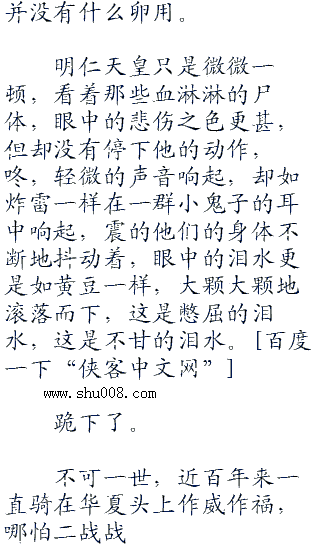 并没有什么卵用。
明仁天皇只是微微一
顿，看着那些血淋淋的尸
体，眼中的悲伤之色更甚，
但却没有停下他的动作，
咚，轻微的声音响起，却如
炸雷一样在一群小鬼子的耳
中响起，震的他们的身体不
断地抖动着，眼中的泪水更
是如黄豆一样，大颗大颗地
滚落而下，这是憋屈的泪
水，这是不甘的泪水。[百度
一下“侠客中文网”]
www.shu008.com
跪下了。
不可一世，近百年来一
直骑在华夏头上作威作福，
哪怕二战战